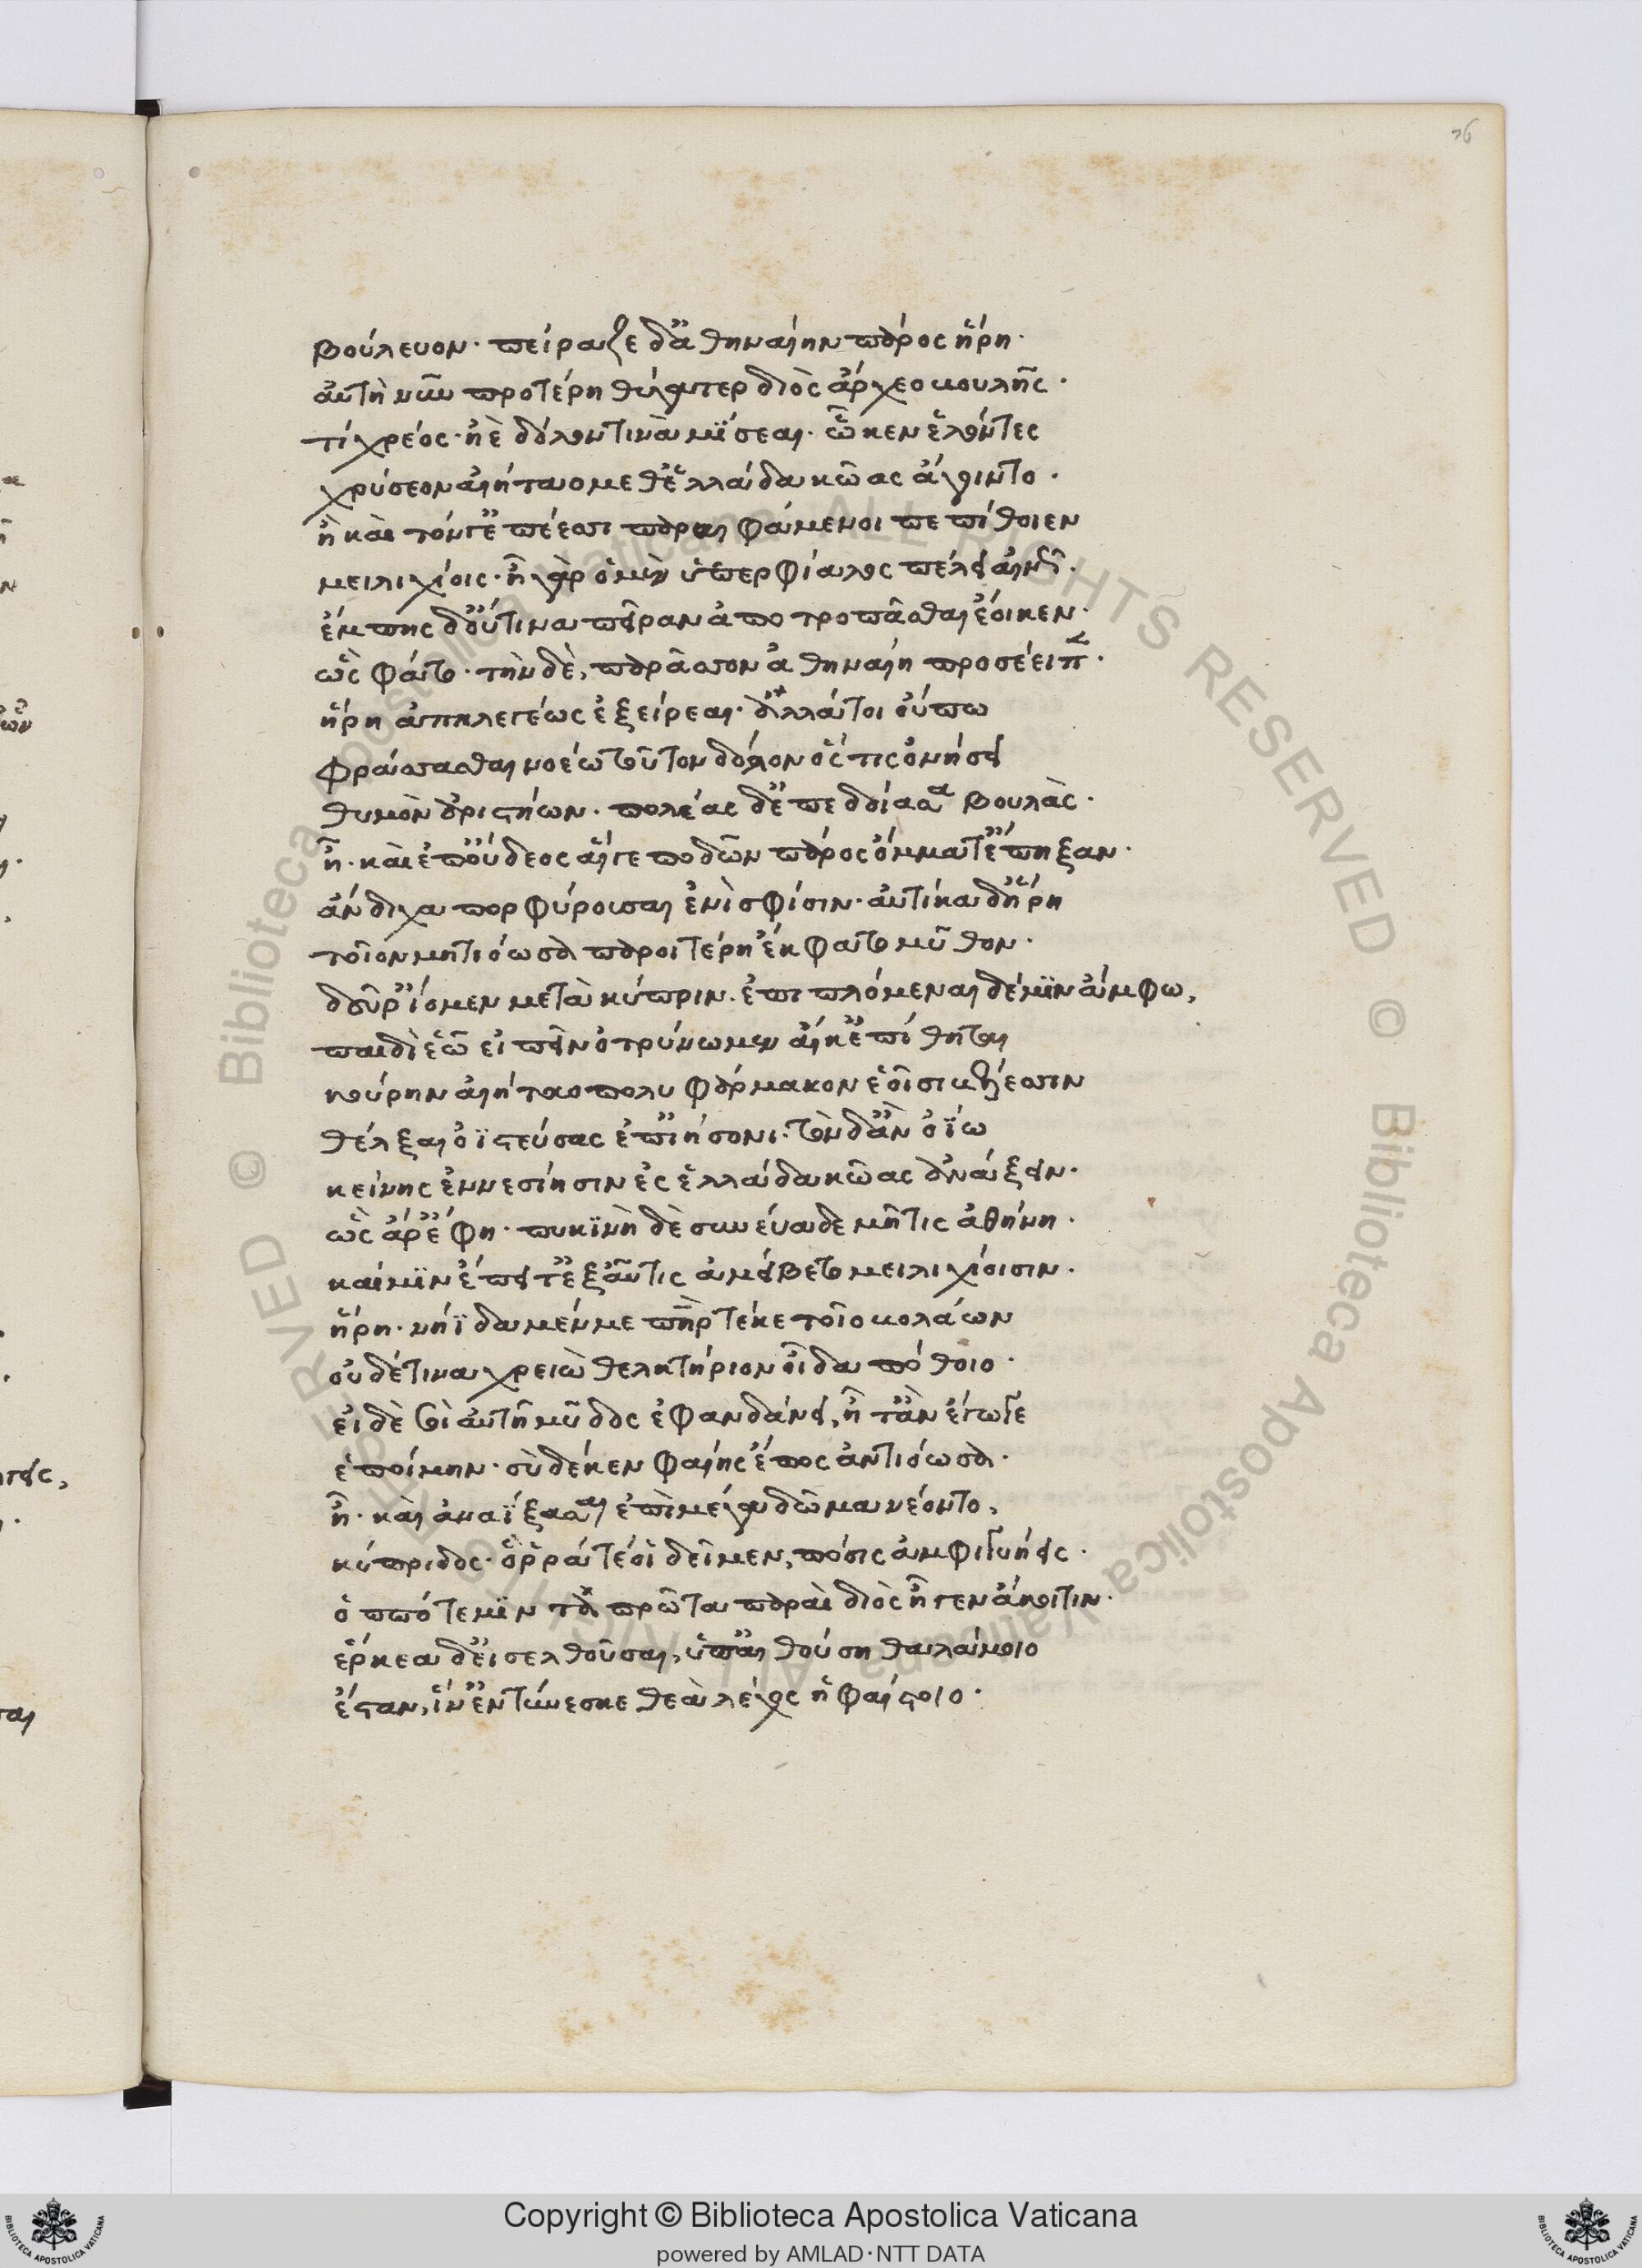 76
βούλευον· πείραζε δ' ἀθηναίην πάρος ἥρη·
αὐτὴ νῦν προτέρη θύγατερ διὸς ἄρχεο βουλῆς·
τί χρέος· ἠὲ δόλον τινὰ μήσεαι· ᾧ κεν ἑλόντες
χρύσεον αἰήταο μεθ' ἑλλάδα κῶας ἄγοιντο·
ἢ καὶ τόνγ' ἐπέεσσι παραιφάμενοι πεπίθοιεν
μειλιχίοις· ἦ γὰρ ὁ μὲν ὑπερφίαλος πέλει αἰνῶς·
ἔμπης δ' οὔτινα πεῖραν ἀποτρωπᾶσθαι ἔοικεν·
ὣς φάτο· τὴν δὲ, παρᾶσσον ἀθηναίη προσέειπε·
ἥρη ἀπηλεγέως ἐξείρεαι· ἀλλά τοι οὔπω
φράσσασθαι νοέω τοῦτον δόλον ὅς τις ὀνήσει
θυμὸν ἀριστήων· πολέας δ' ἐπεδοίασα βουλάς·
ἦ· καὶ ἐπ' οὔδεος αἵγε ποδῶν πάρος ὄμματ' ἔπηξαν·
ἄνδιχα πορφύρουσαι ἐνὶ σφίσιν· αὐτίκα δ' ἥρη
τοῖον μητιόωσα παροιτέρη ἔκφατο μῦθον·
δεῦρ' ἴομεν μετὰ κύπριν· ἐπιπλόμεναι δέ μιν ἄμφω,
παιδὶ ἑῷ εἰπεῖν ὀτρύνωμεν αἴ κε πίθηται
κούρην αἰήταο πολυφάρμακον ἑοῖσι βέλεσσιν
θέλξαι ὀϊστεύσας ἐπ' ἰήσονι· τὸν δ' ἂν ὀΐω
κείνης ἐννεσίῃσιν ἐς ἑλλάδα κῶας ἀνάξειν·
ὣς ἄρ' ἔφη· πυκινὴ δὲ συνεύαδε μῆτις ἀθήνη·
καί μιν ἔπειτ' ἐξαῦτις ἀμείβετο μειλιχίοισιν·
ἥρη· νήϊδα μέν με πατὴρ τέκε τοῖο βολάων
οὐδέ τινα χρειὼ θελκτήριον οἶδα πόθοιο·
εἰ δέ σοι αὐτῇ μῦθος ἐφανδάνει, ἦ τ' ἂν ἔγωγε
ἑποίμην· σὺ δέ κεν φαίης ἔπος ἀντιόωσα·
ἦ· καὶ ἀναΐξασαι ἐπὶ μέγα δῶμα νέοντο,
κύπριδος· ὅρρά τέ οἱ δεῖμεν, πόσις ἀμφιγυήεις·
ὁππότε μιν τὰ πρῶτα παραὶ διὸς ἦγεν ἄκοιτιν·
ἕρκεα δ' εἰσελθοῦσαι, ὑπ' αἰθούσῃ θαλάμοιο
ἔσταν, ἵν' ἐντύνεσκε θεὰ λέχος ἡφαίστοιο·
Copyright © Biblioteca Apostolica Vaticana
powered by AMLAD·NTT DATA